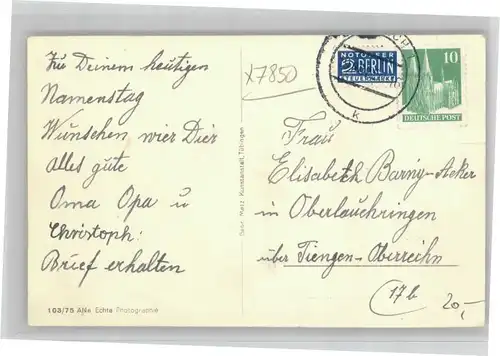 Zu Deinem heutigen
Namenstag
Wünschen wier Dier
alles gute
Oma Opa u
Christoph:
Brief erhalten
103/75 ANe Echte Photographie
Gebr. Metz Kunstanstalt, Tübingen
X7850
NOTOPFER
2 BERLIN
STEUERMARKE
10
DEUTSCHE POST
k
Frau
Elisabeth Barny-Acker
in Oberlauchringen
über Tiengen-Oberrhein
17b
20,-